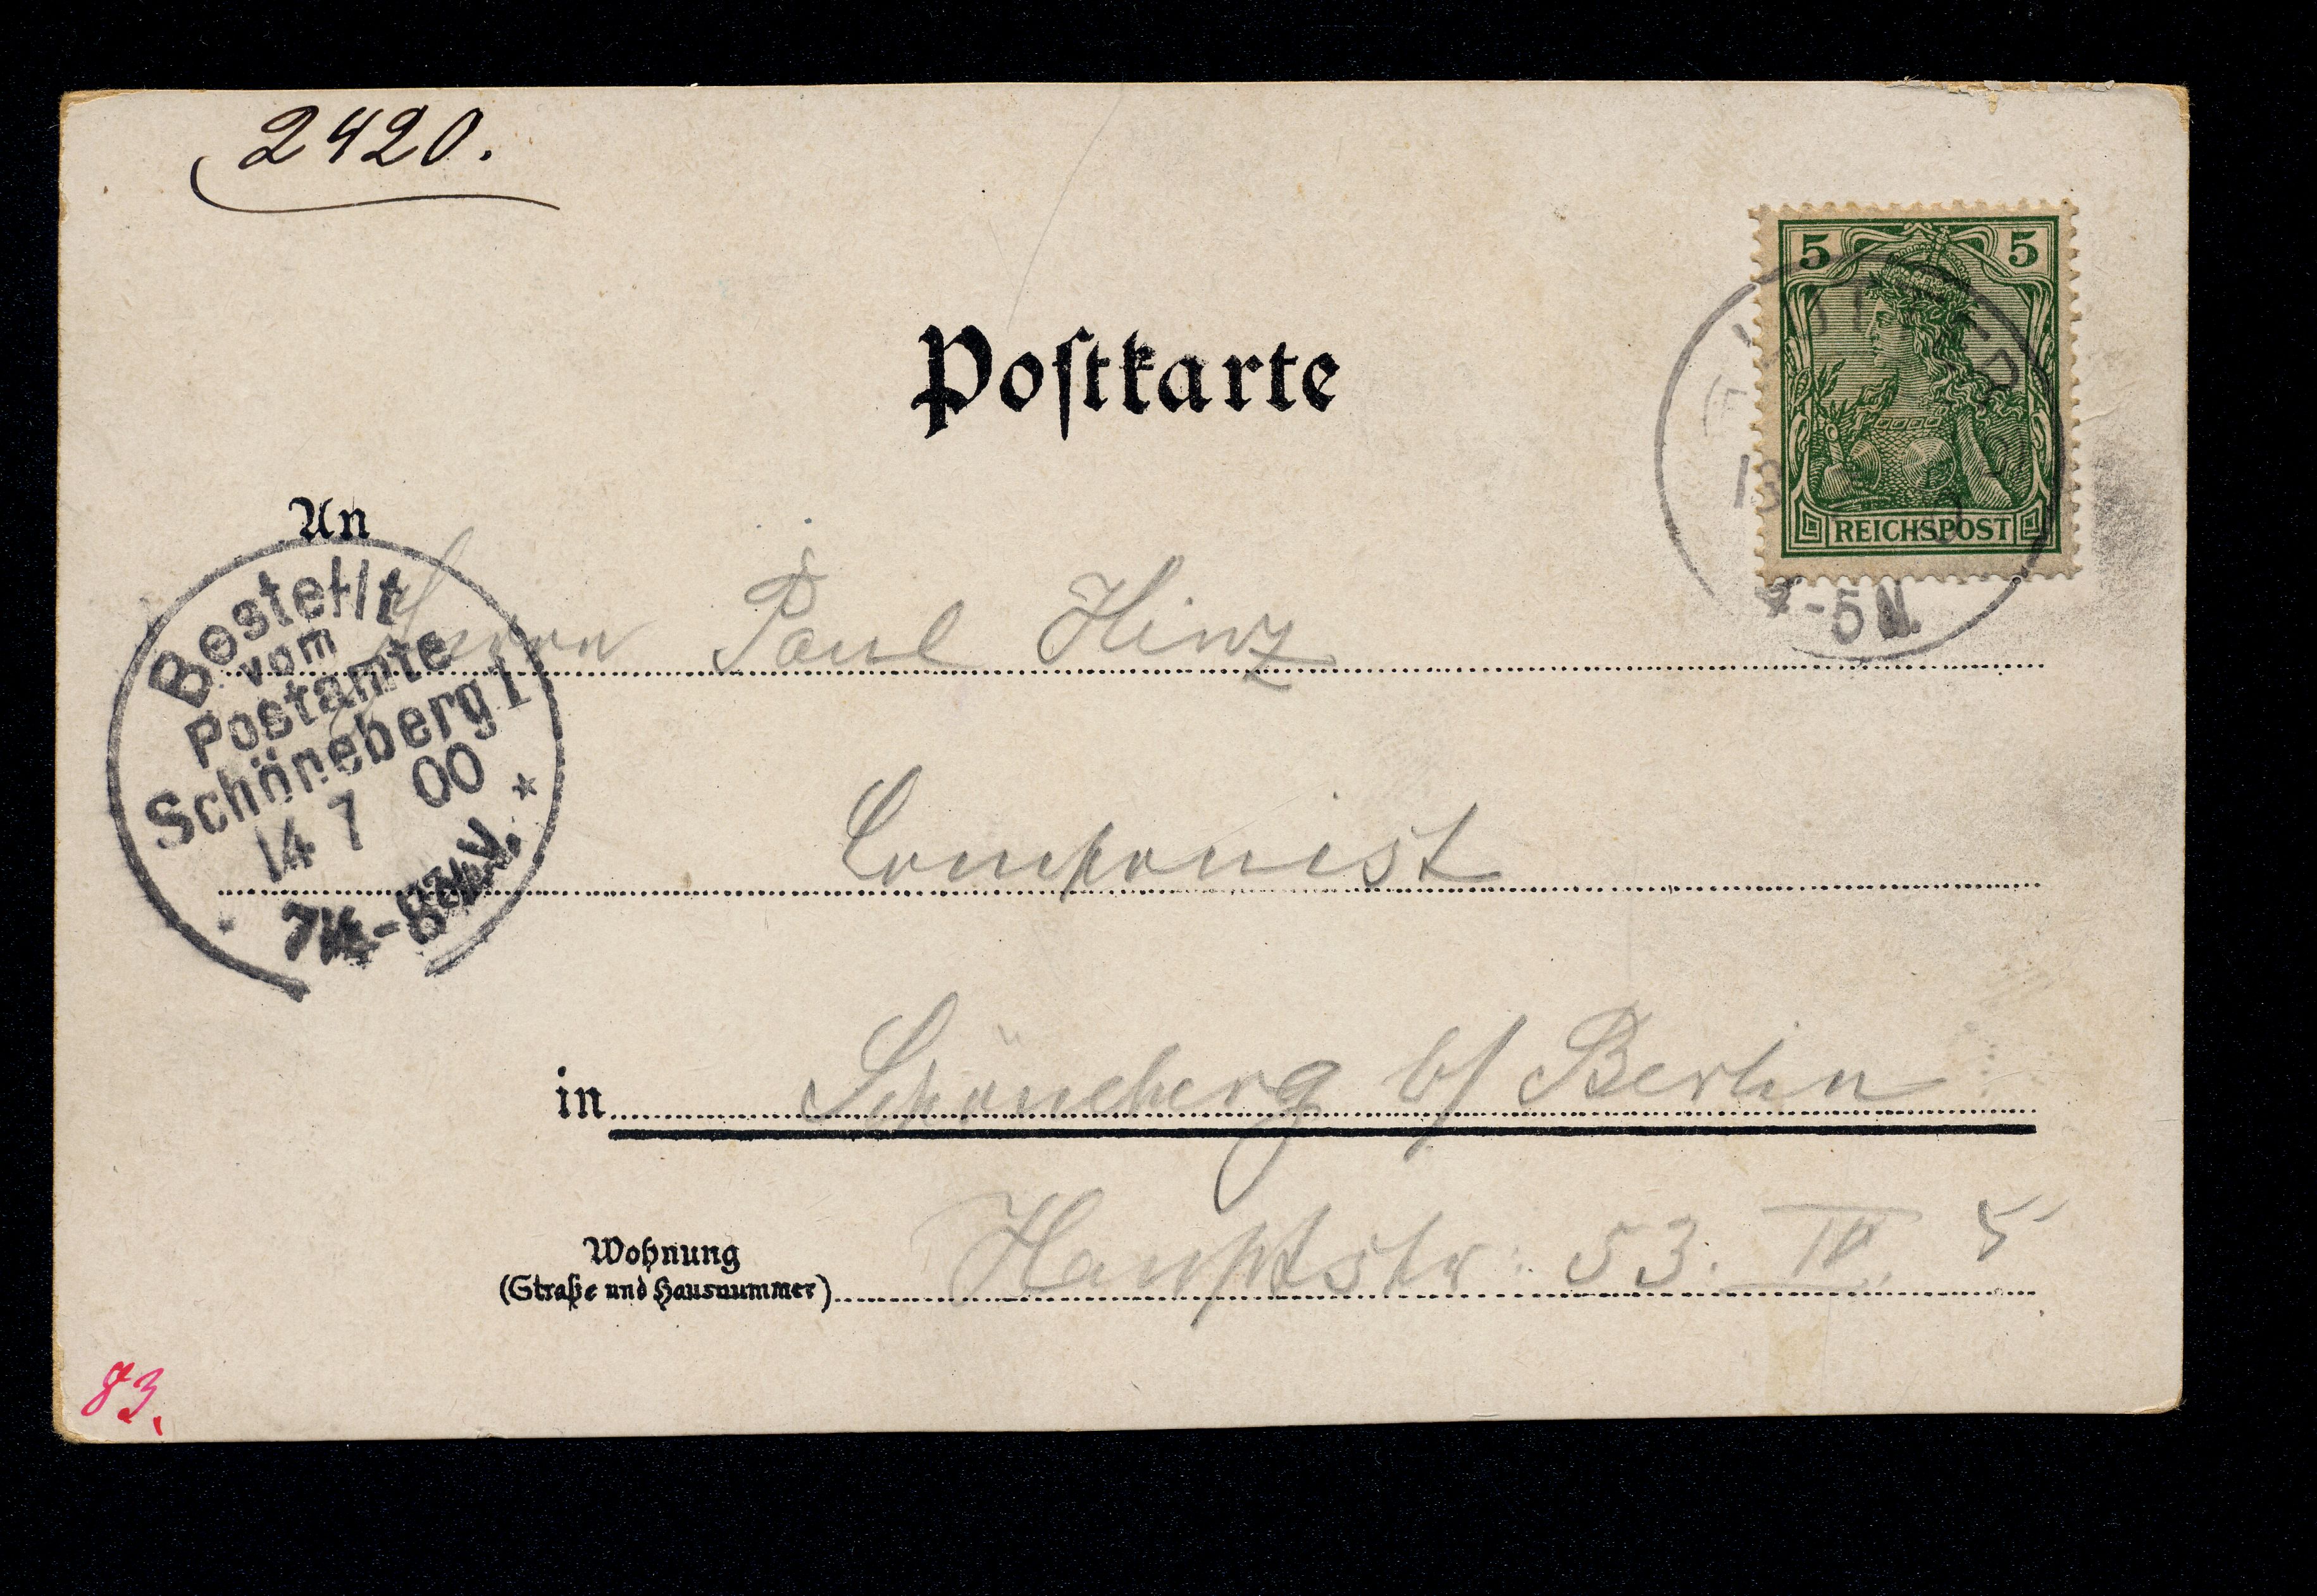 2420.
5 5
REICHSPOST
13
4-5N.
Postkarte
An
Herrn Paul Hinz
Bestellt
vom
Postamte
Schöneberg 1
14 7 00
7¼-8¾V.
Componist
in Schöneberg b/ Berlin
Wohnung
(Straße und Hausnummer)
Hauptstr: 53. IV. 5
83.